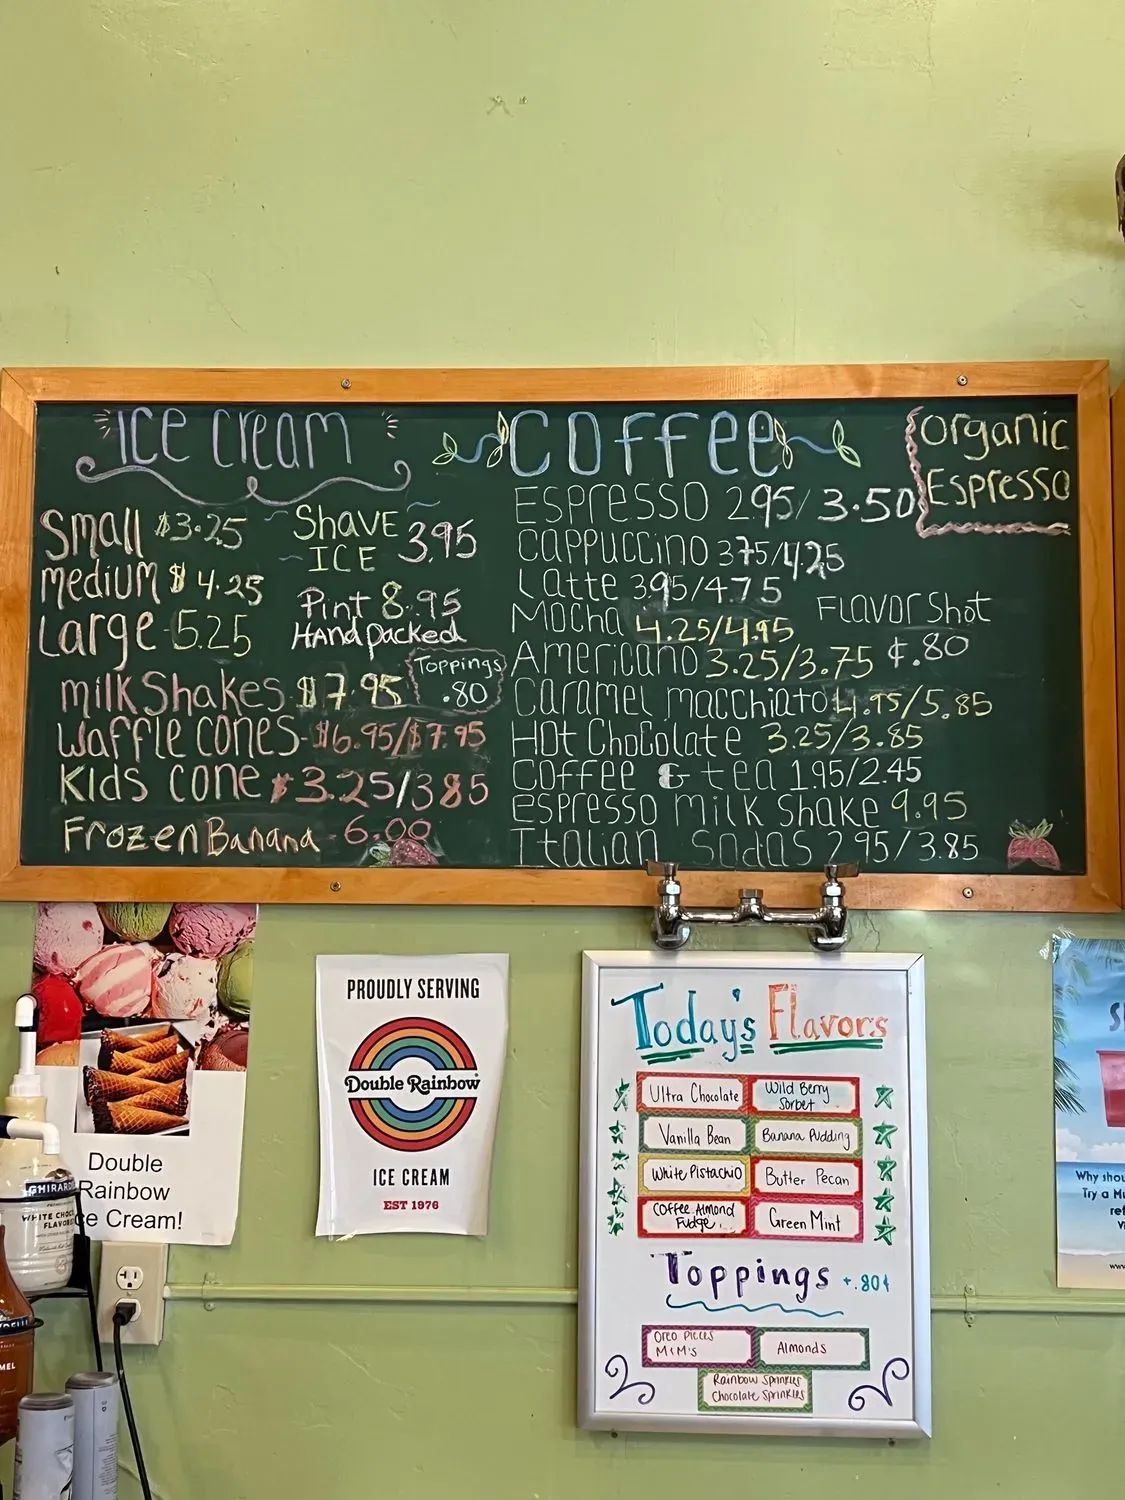 Ice Cream
Small $3.25
Medium $4.25
Large 5.25
Shave
ICE 3.95
Pint 8.95
Hand packed
Toppings
.80
milkShakes $7.95
Waffle cones $6.95/$7.95
Kids cone $3.25/3.85
Frozen Banana 6.00
Coffee
Organic
Espresso
Espresso 2.95/3.50
Cappuccino 375/4.25
Latte 395/4.75
Mocha 4.25/4.95
Americano 3.25/3.75
Flavor Shot
¢.80
Caramel macchiato 4.95/5.85
Hot Chocolate 3.25/3.85
Coffee & tea 195/2.45
espresso milk shake 9.95
Italian sodas 295/3.85
Double
Rainbow
ce Cream!
GHIRARD
WHITE CHOC
FLAVOR
MEL
PROUDLY SERVING
Double Rainbow
ICE CREAM
EST 1976
Today's Flavors
Ultra Chocolate
Wild Berry
Sorbet
Vanilla Bean
Banana Pudding
White Pistachio
Butter Pecan
Coffee Almond
Fudge
Green Mint
Toppings +.80¢
Oreo Pieces
M&M's
Almonds
Rainbow Sprinkles
Chocolate Sprinkles
Why shou
Try a Mu
ref
v
www